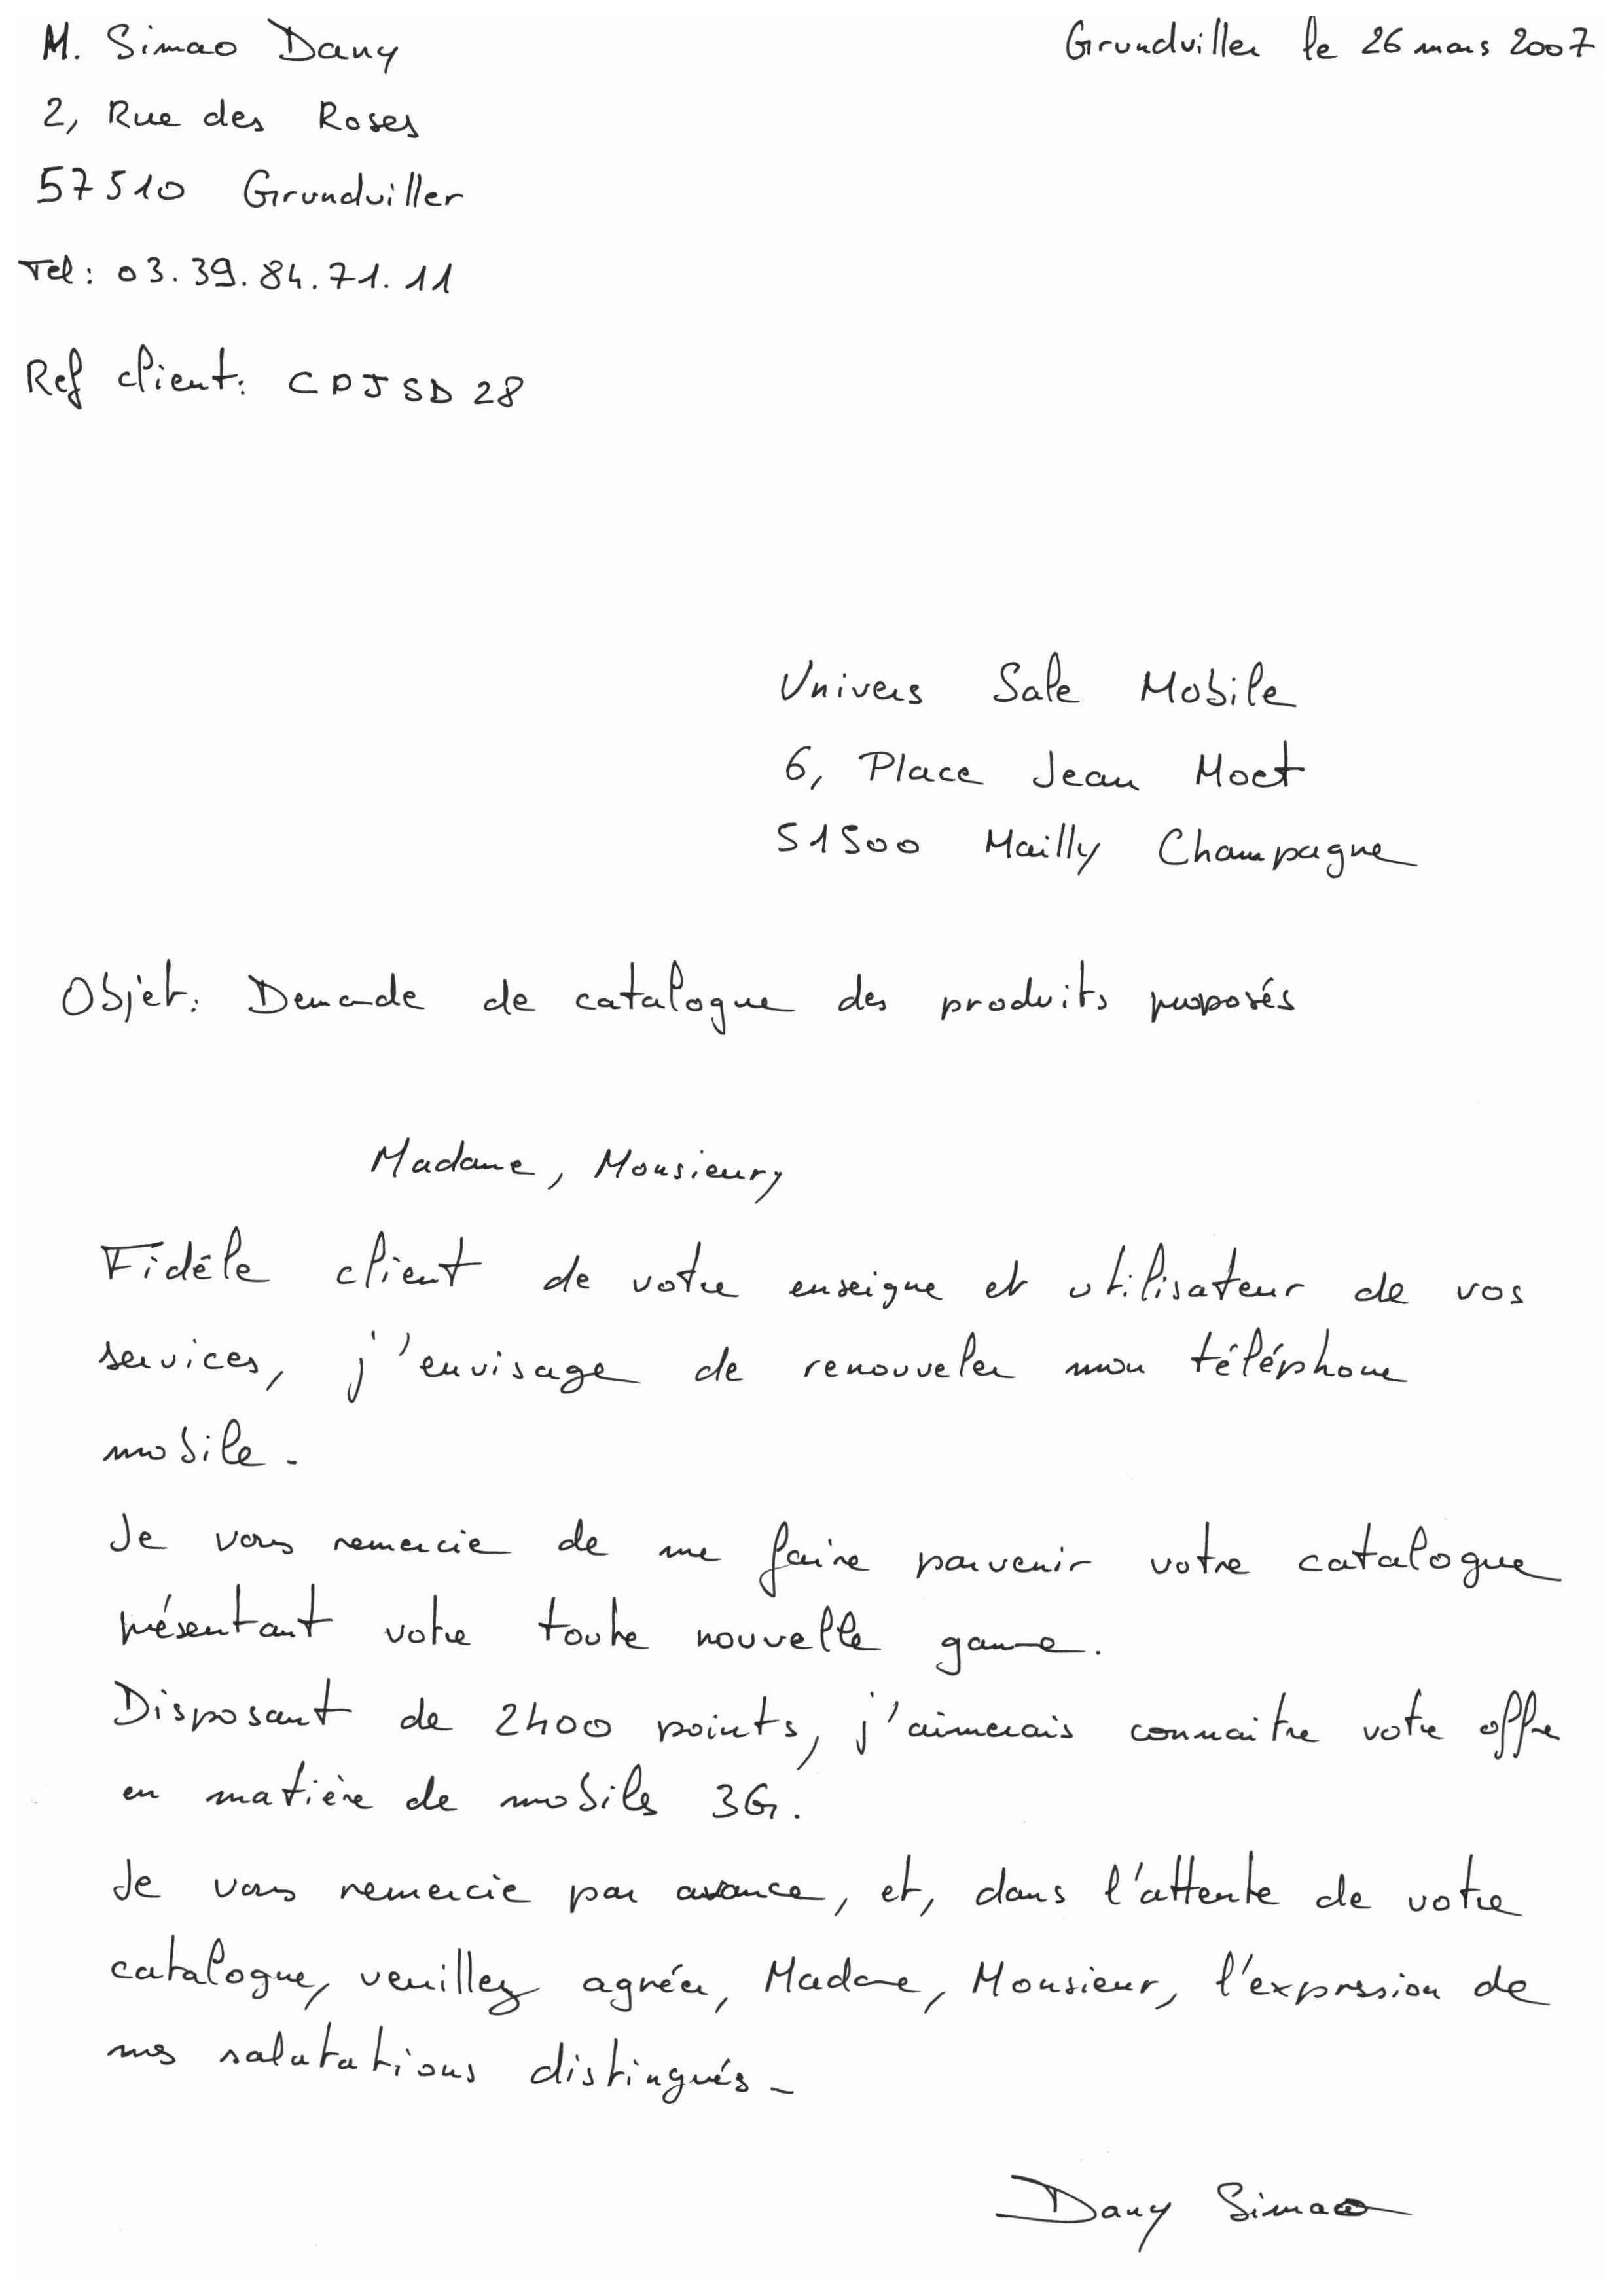 M. Simao Dany
Grundviller le 26 mars 2007
2, Rue des Roses
57510 Grundviller
Tel: 03.39.84.71.11
Ref client: CDJSD28
Univers Sale Mobile
6, Place Jean Moet
51500 Mailly Champagne
Objet: Demande de catalogue des produits proposés
Madame, Monsieur,
Fidèle client de votre enseigne et utilisateur de vos
services, j'envisage de renouveler mon téléphone
mobile.
Je vous remercie de me faire parvenir votre catalogue
présentant votre toute nouvelle gamme.
Disposant de 2400 points, j'aimerais connaitre votre offre
en matière de mobiles 3G.
Je vous remercie par avance, et, dans l'attente de votre
catalogue, veuillez agréer, Madame, Monsieur, l'expression de
mes salutations distingués.
Dany Simao